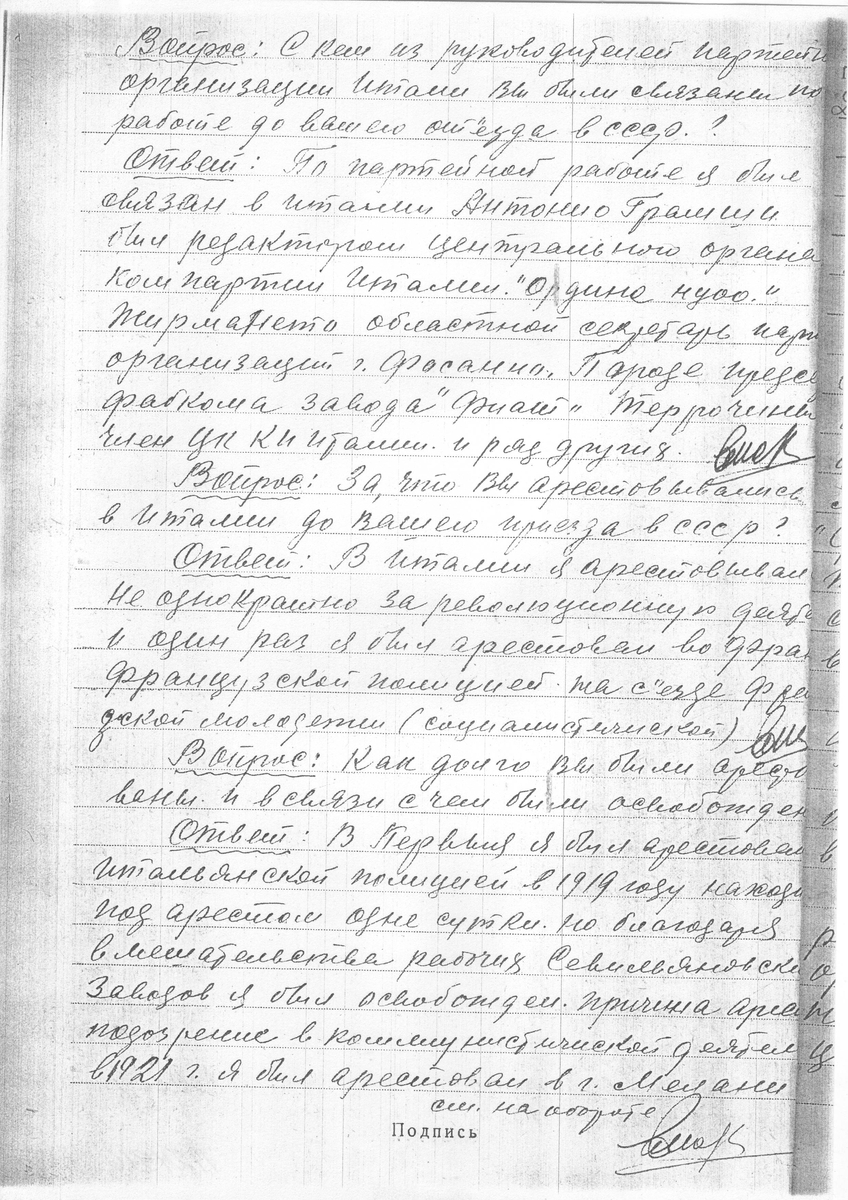 Вопрос: С кем из руководителей партейн
организации Италии Вы были связаны по
работе до вашего от"езда в ссср.?
Ответ: По партейной работе я был
связан в Италии Антонио Грамши
был редактором центрального органа
компартии Италии. "Ордине нуво."
Жирмането областной секретарь парт
организаций г. Фосани". Пароде предсе
фабкома завода "Фиат" Террочини
член ЦК КП Италии. и ряд других.
Вопрос: За что Вы арестовывались
в Италии до вашего приезда в ссср?
Ответ: В Италии я арестовывал
не однократно за революционную деят
и один раз я был арестован во Фран
французской полицией. на с"езде фран
зской молодежи (социалистической)
Вопрос: Как долго Вы были аресто
ваны. и в связи с чем были освобожден
Ответ: В Первыя я был арестован
итальянской полицией в 1919 году наход
под арестом одне сутки. но благодаря
вмешательства рабочих Севильяновски
заводов я был освобожден. причина арес
подозрение в коммунистической деятел
в 1921 г. я был арестован в г. Мелани
см. на обороте
Подпись